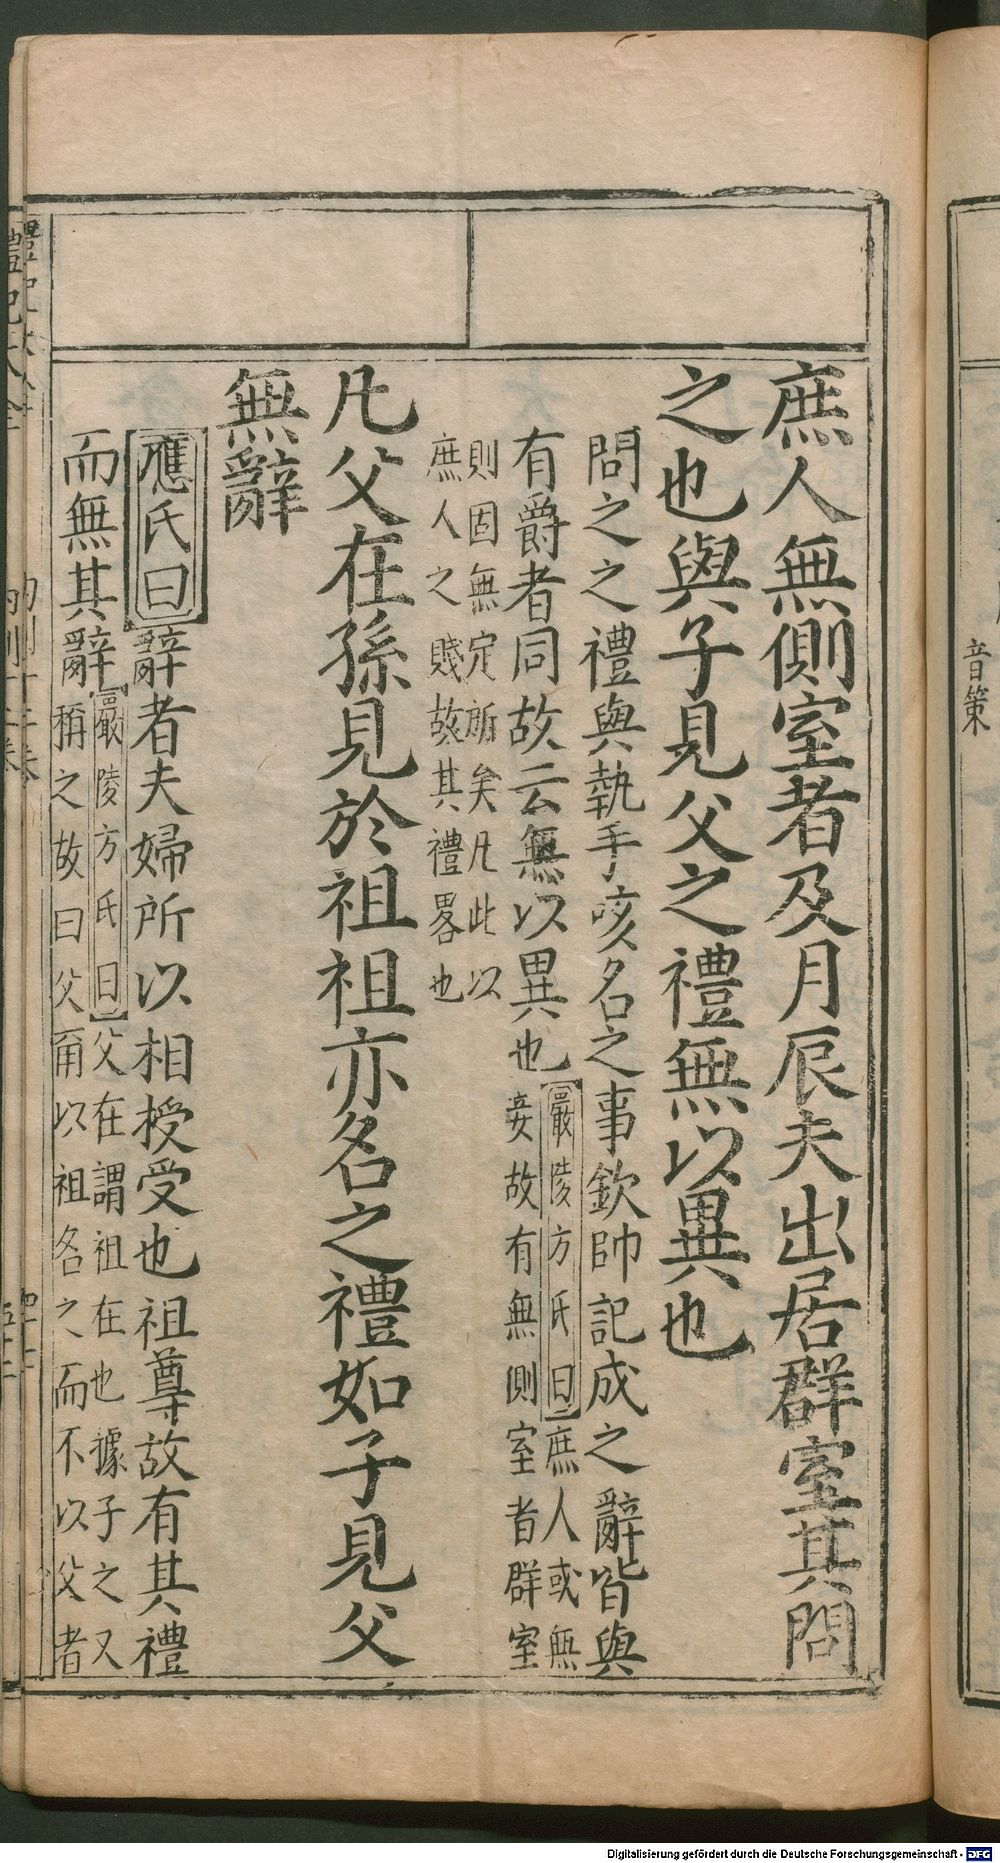 庶人無側室者及月辰夫出居群室其問
之也與子見父之禮無以異也
問之之禮與執手咳名之事欽帥記成之辭皆與
有爵者同故云無以異也嚴陵方氏曰庶人或無
妾故有無側室者群室
則固無定所矣凡此以
庶人之賤故其禮畧也
凡父在孫見於祖祖亦名之禮如子見父
無辭
應氏曰辭者夫婦所以相授受也祖尊故有其禮
而無其辭嚴陵方氏曰父在謂祖在也據子之又
稱之故曰父爾以祖名之而不以父者
音策
Digitalisierung gefördert durch die Deutsche Forschungsgemeinschaft - DFG